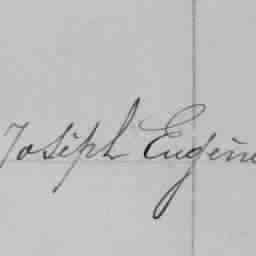 Joseph Eugène